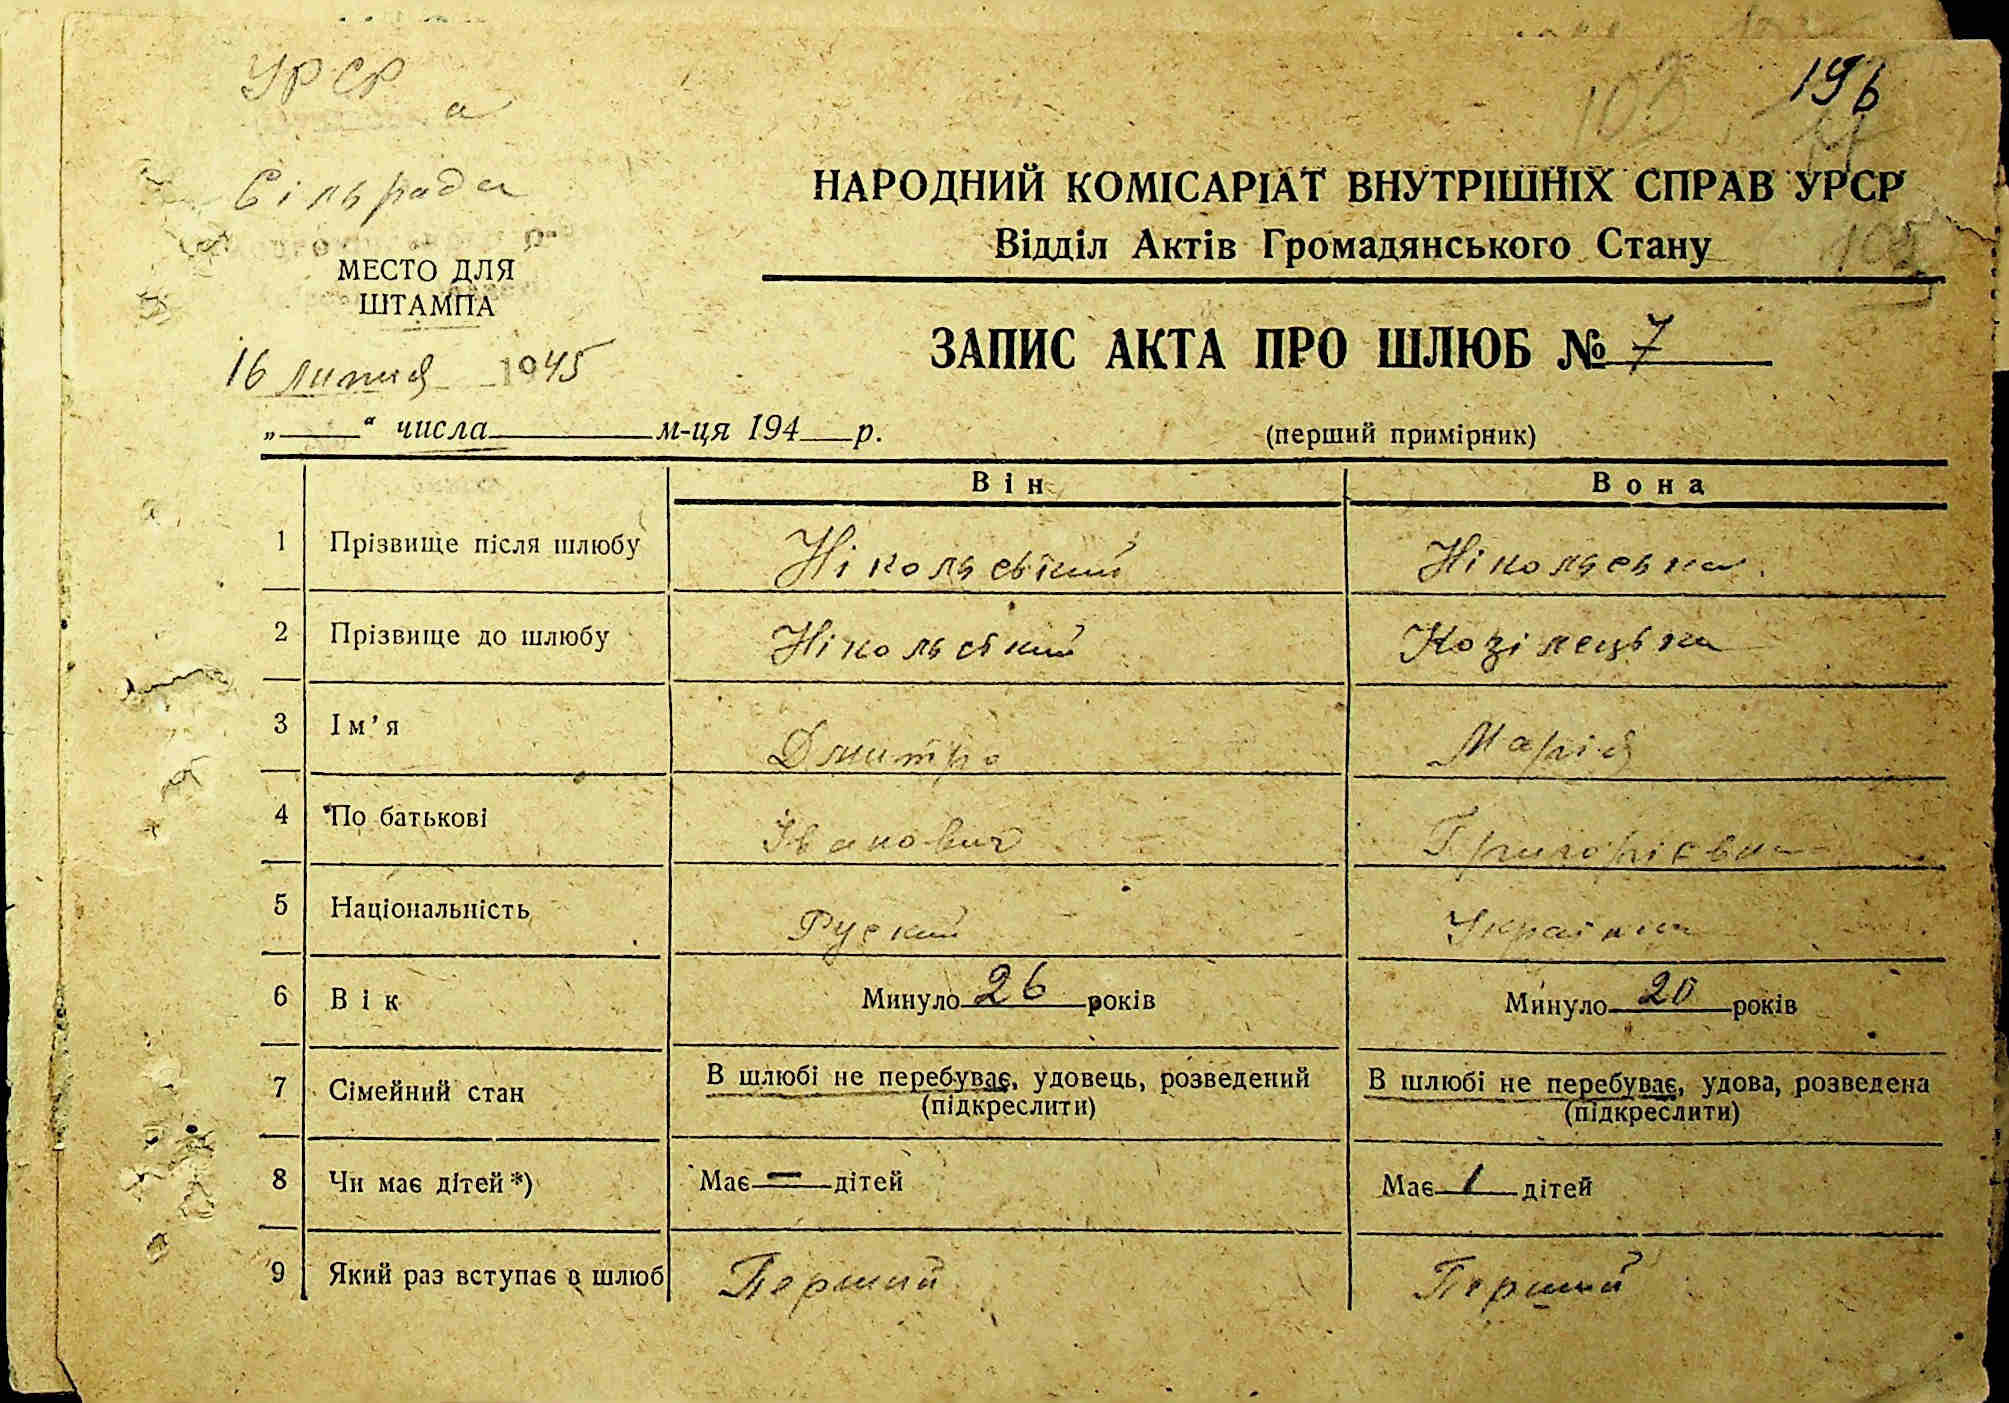 УРСР
196
Сільрада
НАРОДНИЙ КОМІСАРІАТ ВНУТРІШНІХ СПРАВ УРСР
Відділ Актів Громадянського Стану
105
МЕСТО ДЛЯ
ШТАМПА
ЗАПИС АКТА ПРО ШЛЮБ № 7
16 липня 1945
„ “ числа м-ця 194 р.
(перший примірник)
Він Вона
1 Прізвище після шлюбу Нікольський Нікольська
2 Прізвище до шлюбу Нікольський Козілецька
3 Ім’я Дмитро Марія
4 По батькові Іванович Григорієвна
5 Національність Руский Українка
6 Вік Минуло 26 років Минуло 20 років
7 Сімейний стан В шлюбі не перебуває, удовець, розведений В шлюбі не перебуває, удова, розведена
(підкреслити) (підкреслити)
8 Чи має дітей *) Має — дітей Має 1 дітей
9 Який раз вступає в шлюб Перший Перший